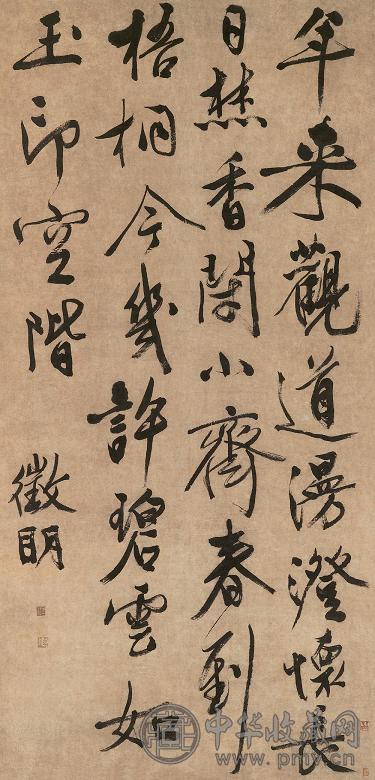 年来觀道漫澄懷長
日焚香閉小齋春到
梧桐今幾許碧雲如
玉印空階
徵明
中华收藏网
www.pmv.cn